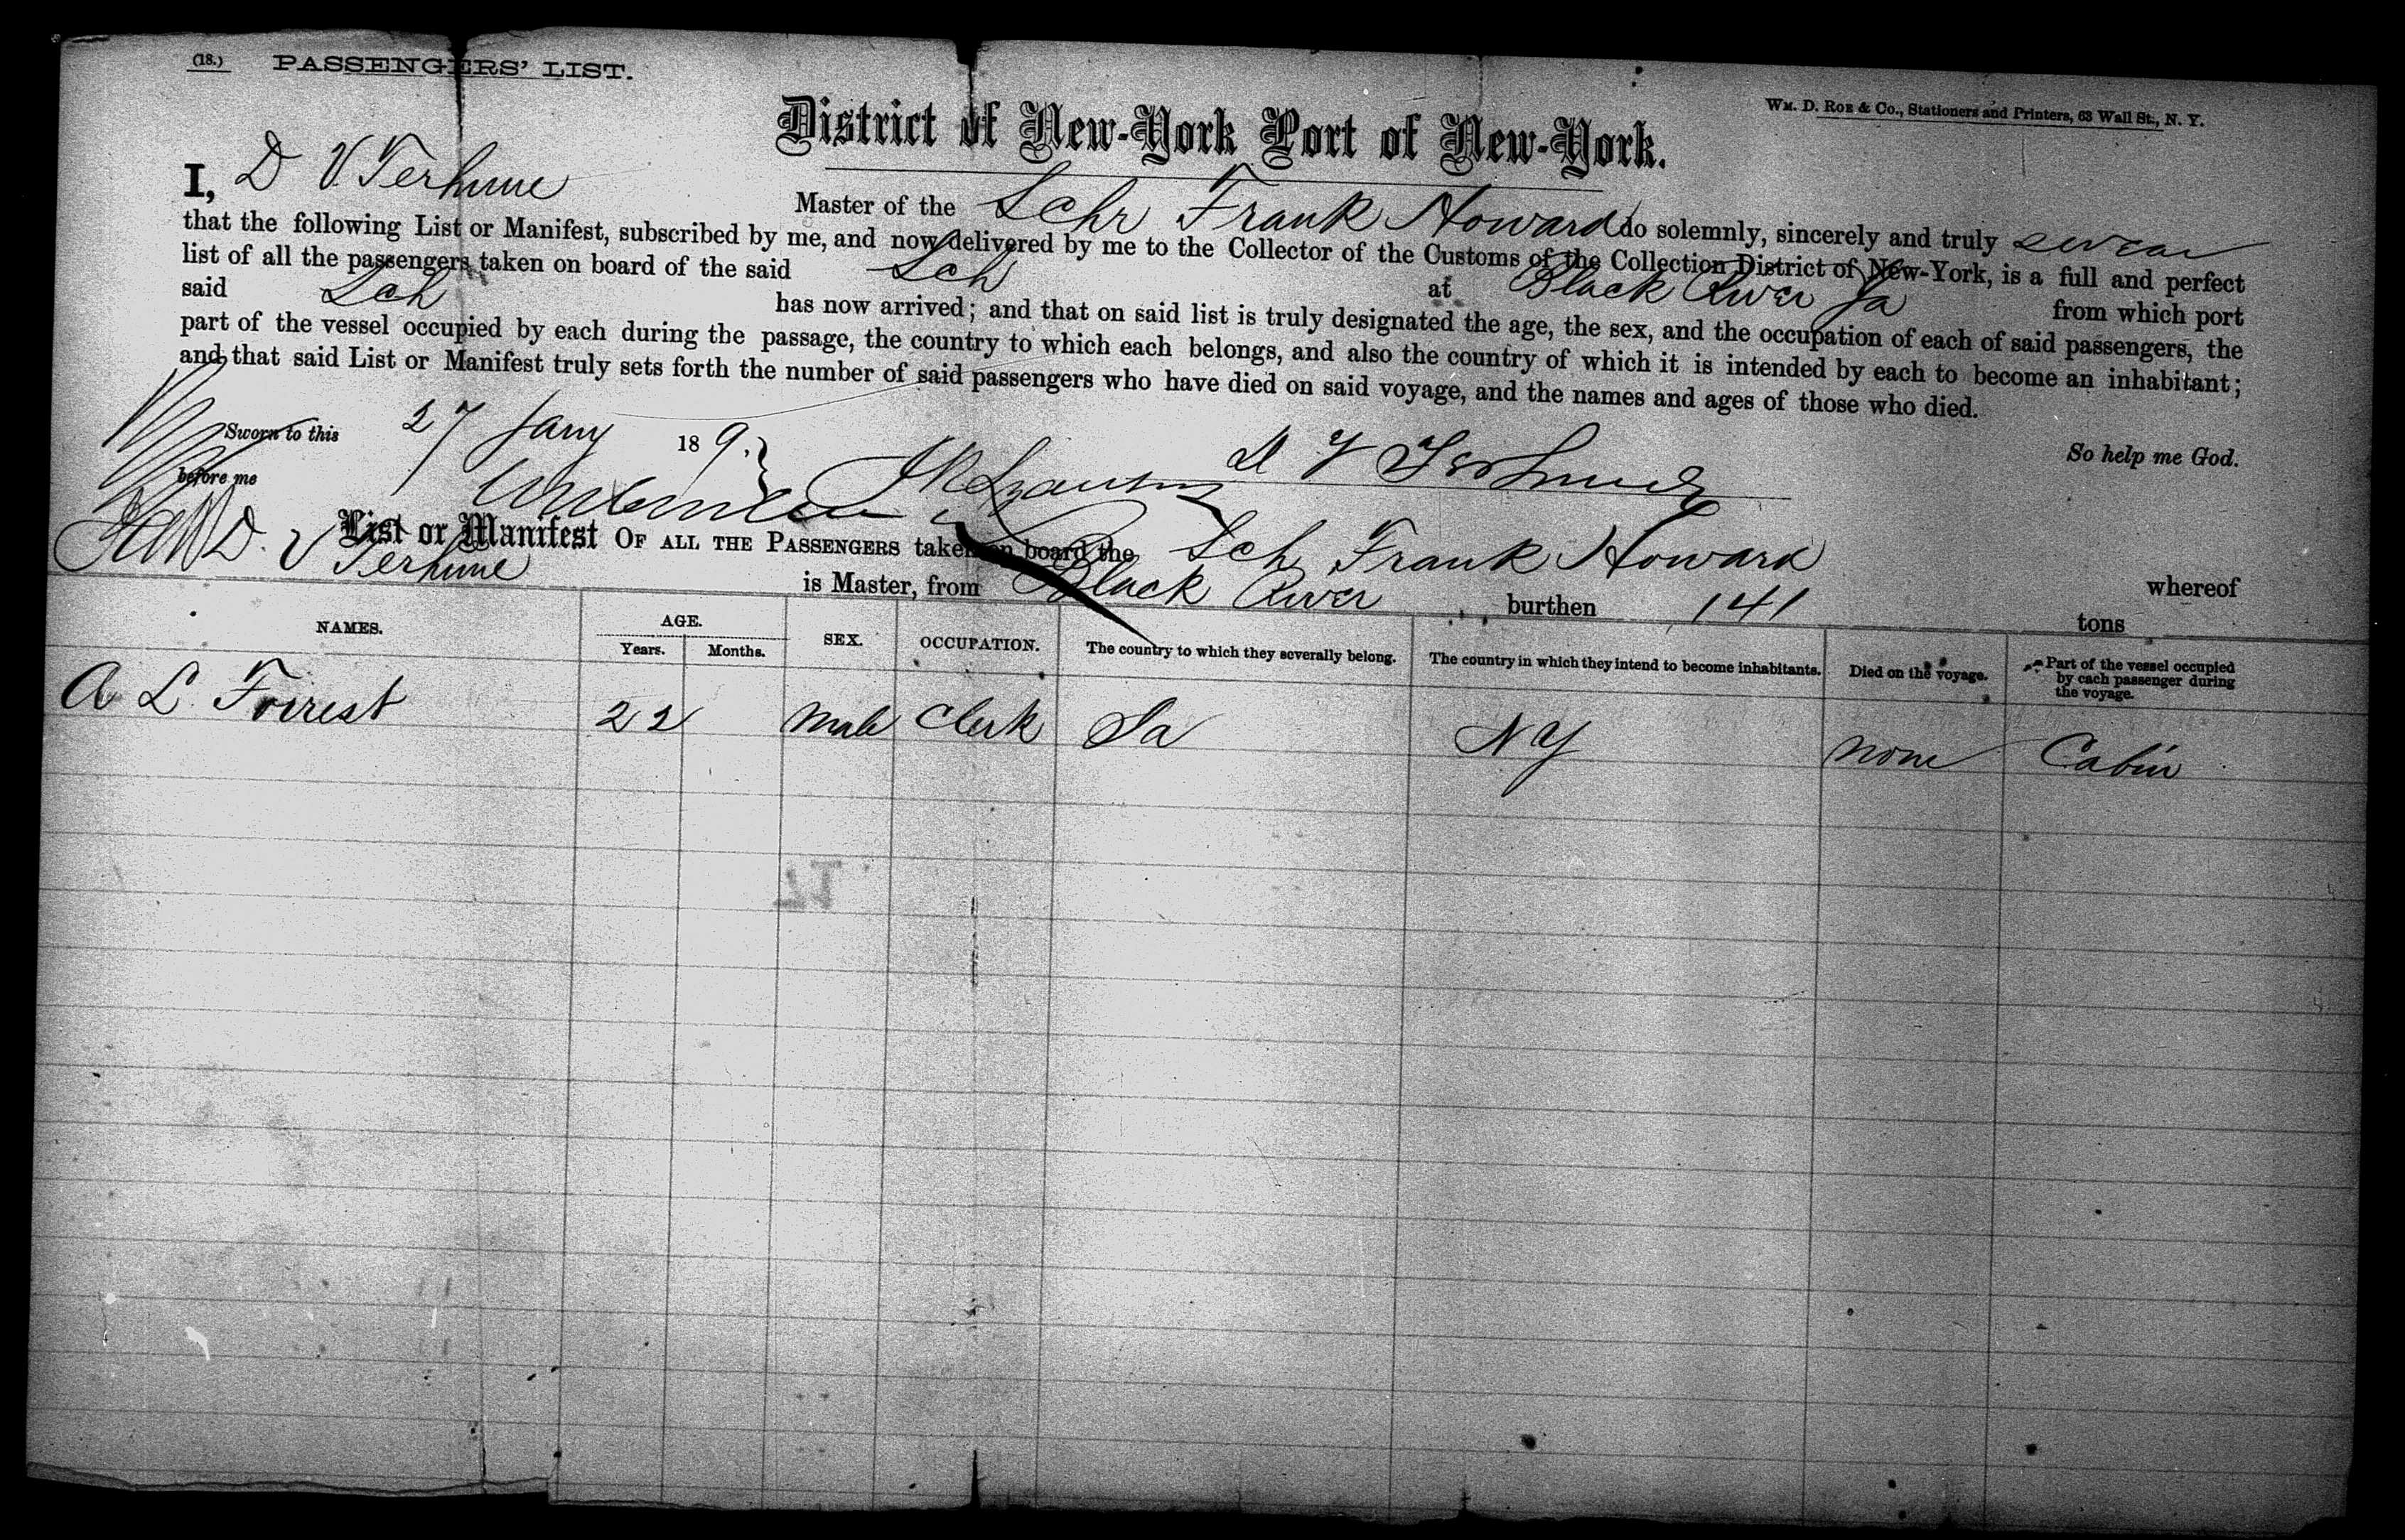 (18.) PASSENGERS' LIST.
Wm. D. Roe & Co., Stationers and Printers, 63 Wall St., N. Y.
District of New-York Port of New-York.
I, D V Terhune Master of the Schr Frank Howard do solemnly, sincerely and truly swear
that the following List or Manifest, subscribed by me, and now delivered by me to the Collector of the Customs of the Collection District of New-York, is a full and perfect
list of all the passengers taken on board of the said Sch at Black River Ja from which port
said Sch has now arrived; and that on said list is truly designated the age, the sex, and the occupation of each of said passengers, the
part of the vessel occupied by each during the passage, the country to which each belongs, and also the country of which it is intended by each to become an inhabitant;
and that said List or Manifest truly sets forth the number of said passengers who have died on said voyage, and the names and ages of those who died.
So help me God.
Sworn to this 27 Jany 189
before me D V Terhune
List or Manifest OF ALL THE PASSENGERS taken on board the Sch Frank Howard whereof
D. V Terhune is Master, from Black River burthen 141 tons
NAMES. AGE. SEX. OCCUPATION. The country to which they severally belong. The country in which they intend to become inhabitants. Died on the voyage. Part of the vessel occupied by each passenger during the voyage.
Years. Months.
A L Forrest 22 Male Clerk Ja NY none Cabin